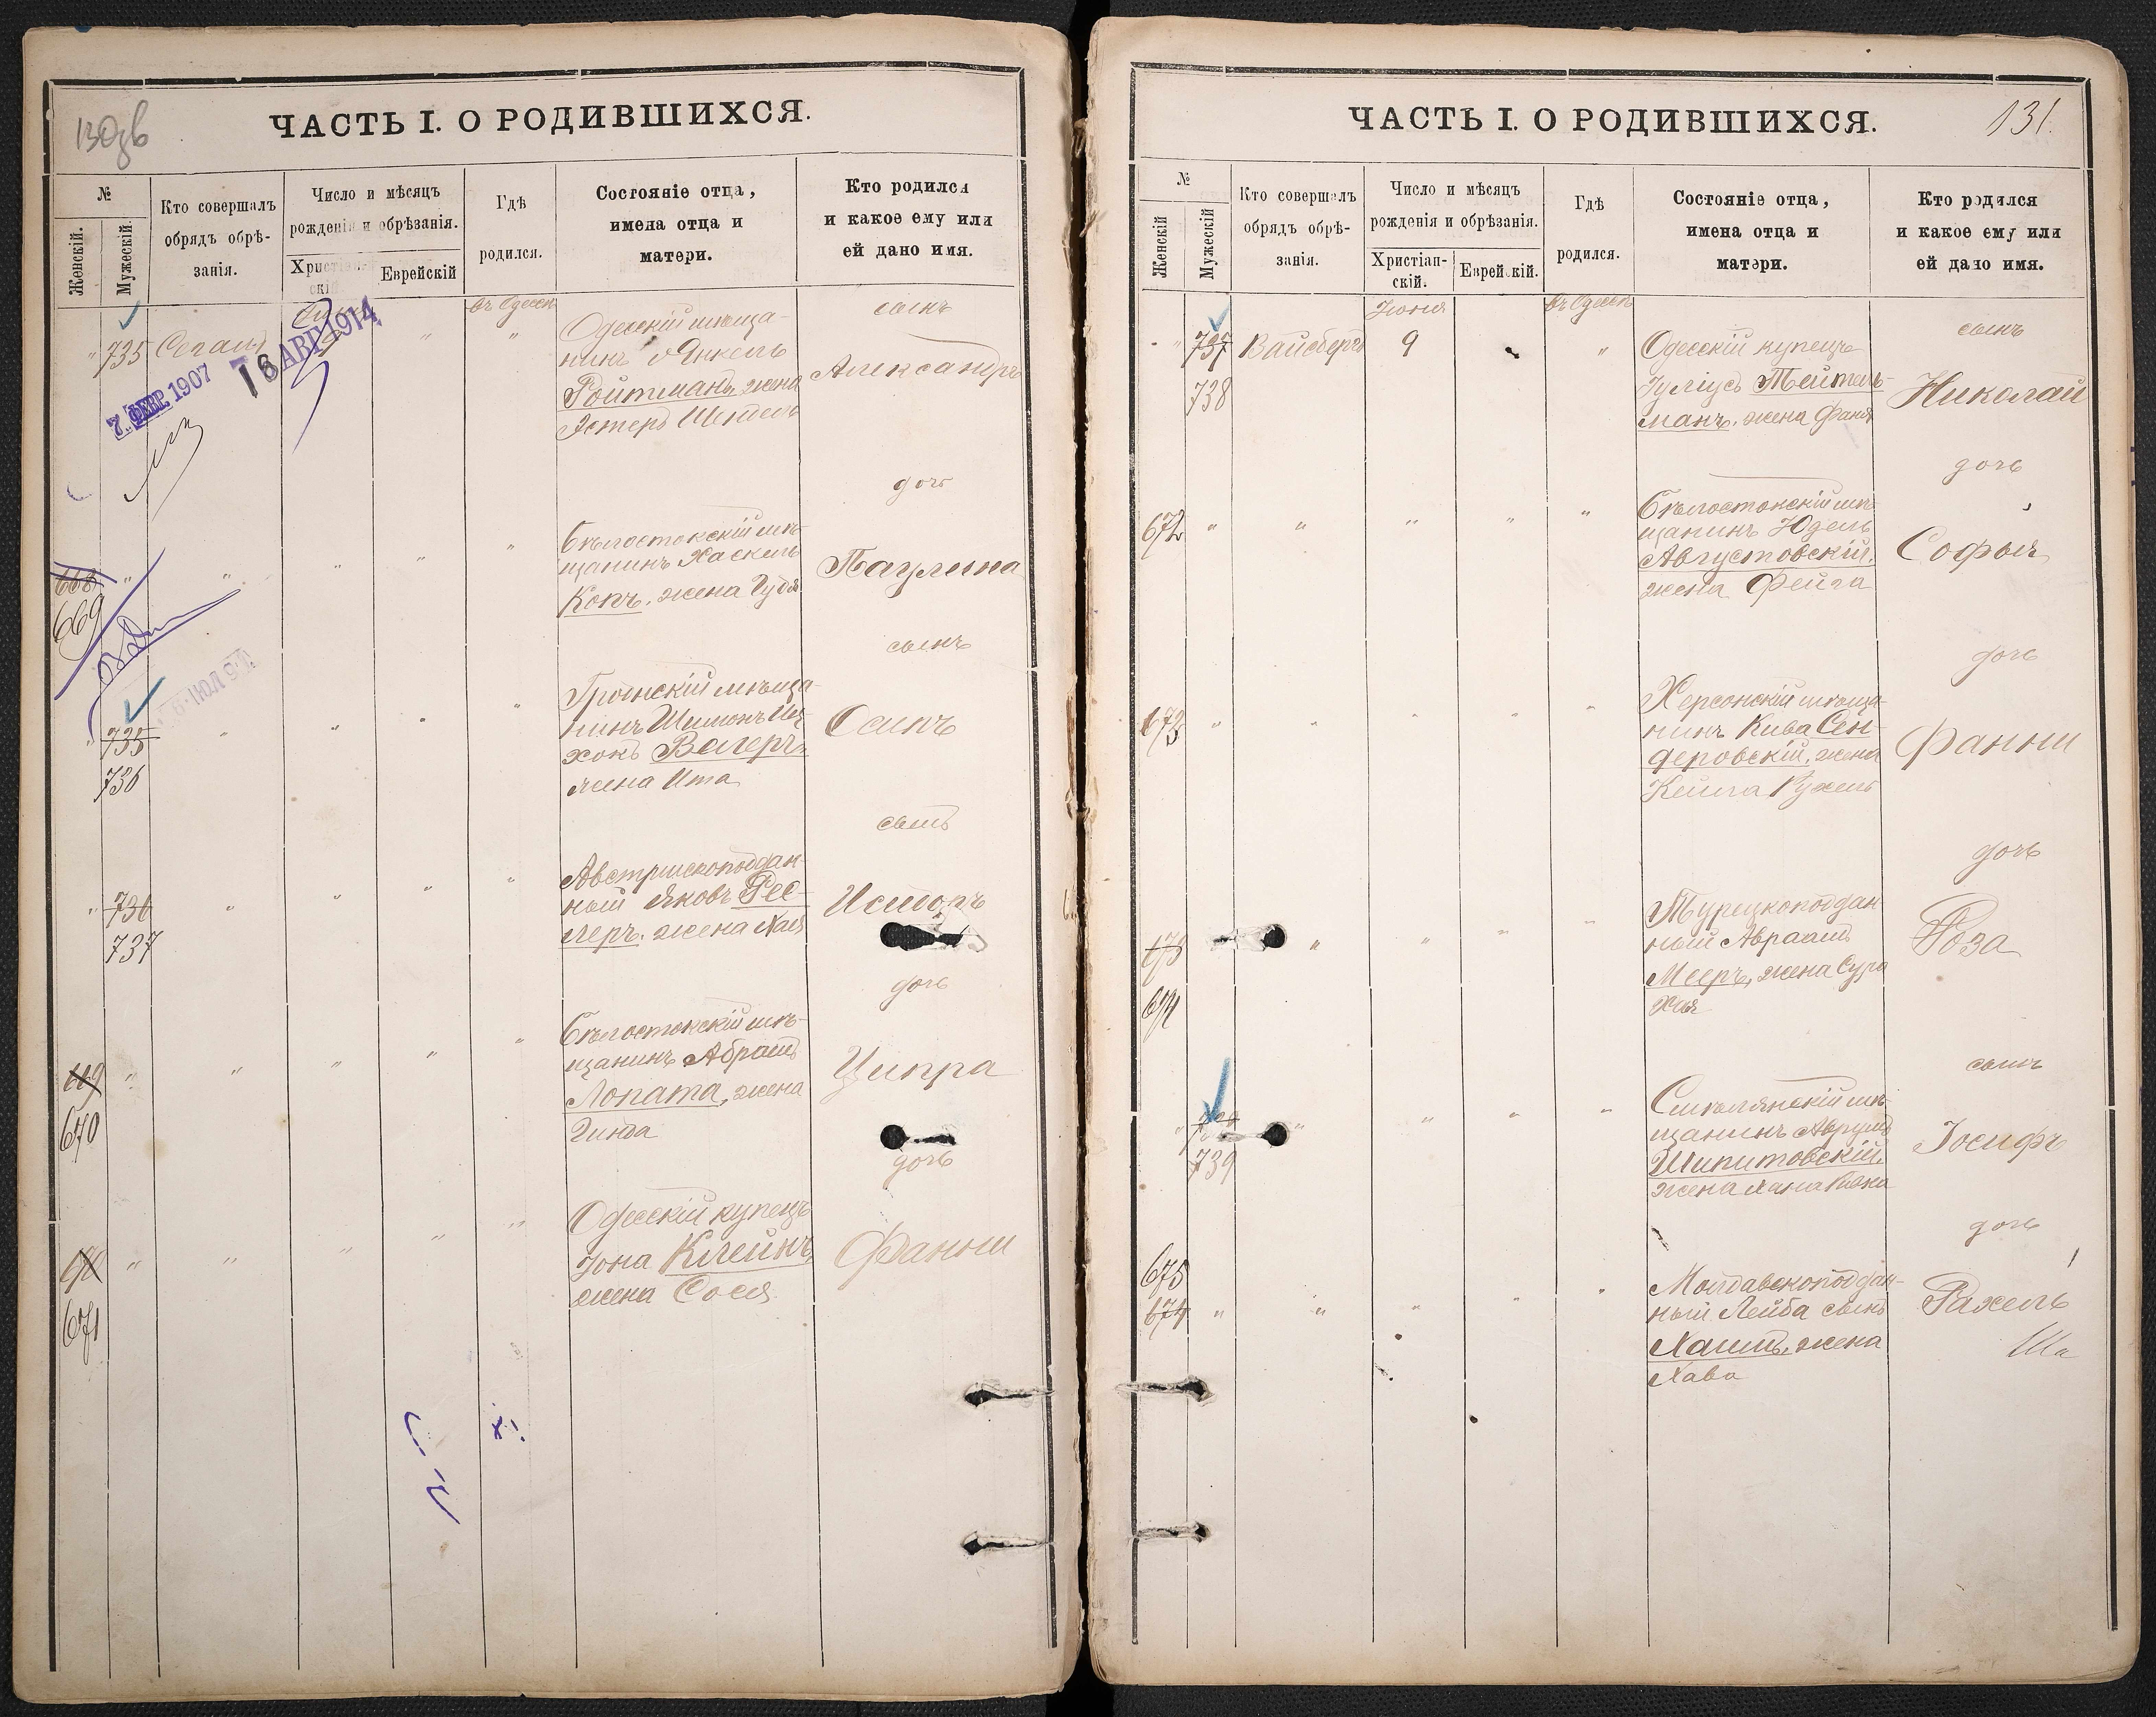 130зв
ЧАСТЬ I. О РОДИВШИХСЯ.
№
Женскій.
Мужескій.
Кто совершалъ
обрядъ обрѣ-
занія.
Число и мѣсяцъ
рожденія и обрѣзанія.
Христіан-
скій
Еврейскій
Гдѣ
родился.
Состояніе отца,
имена отца и
матери.
Кто родился
и какое ему или
ей дано имя.
въ Одессѣ
" 735 Сегалъ " "
7. ФЕВР. 1907
18 АВГ 1914
Одесскій мѣща-
нинъ Янкель
Ройтманъ, жена
Эстеръ Шейдель
сынъ
Александръ
668 " " " " "
669
Бѣлостокскій мѣ-
щанинъ Хаскель
Копъ, жена Гудя
дочь
Паулина
6 ИЮЛ 9
" 735 " " " "
736
мѣща-
нинъ Шимонъ Иц-
хокъ Вагеръ,
жена Ита
сынъ
Осипъ
" 736 " " " "
737
Австрійскоподдан-
ный Яковъ Рес-
леръ, жена Хая
сынъ
669 " " " " "
670
Бѣлостокскій мѣ-
щанинъ Абрамъ
Лопата, жена
Гинда
дочь
Ципра
670 " " " " "
671
Одесскій купецъ
Іона Клейнъ,
жена Сося
дочь
Фанни
131.
ЧАСТЬ I. О РОДИВШИХСЯ.
№
Женскій
Мужескій
Кто совершалъ
обрядъ обрѣ-
занія.
Число и мѣсяцъ
рожденія и обрѣзанія.
Христіан-
скій.
Еврейскій.
Гдѣ
родился.
Состояніе отца,
имена отца и
матери.
Кто родился
и какое ему или
ей дано имя.
Іюня
въ Одессѣ
" 737 Вайсбергъ 9 " "
738
Одесскій купецъ
Іуліусъ Тейтель-
манъ, жена Фаня
сынъ
Николай
672 " " " " "
Бѣлостокскій мѣ-
щанинъ Юдель
Августовскій,
жена Фейга
дочь
Софья
673 " " " " "
Херсонскій мѣща-
нинъ Кива Сен-
деровскій, жена
Кейла Рухель
дочь
Фанни
673 " " " "
674
Турецкоподдан-
ный Авраамъ
Мееръ, жена Сура
Хая
дочь
Роза
" 738 " " " "
739
Смѣлянскій мѣ-
щанинъ Аврумъ
Шипитовскій,
жена Хана Ривка
сынъ
Іосифъ
675
674 " " " " "
Молдавскоподдан-
ный Лейба сынъ
Хаима, жена
Хава
дочь
Рахель